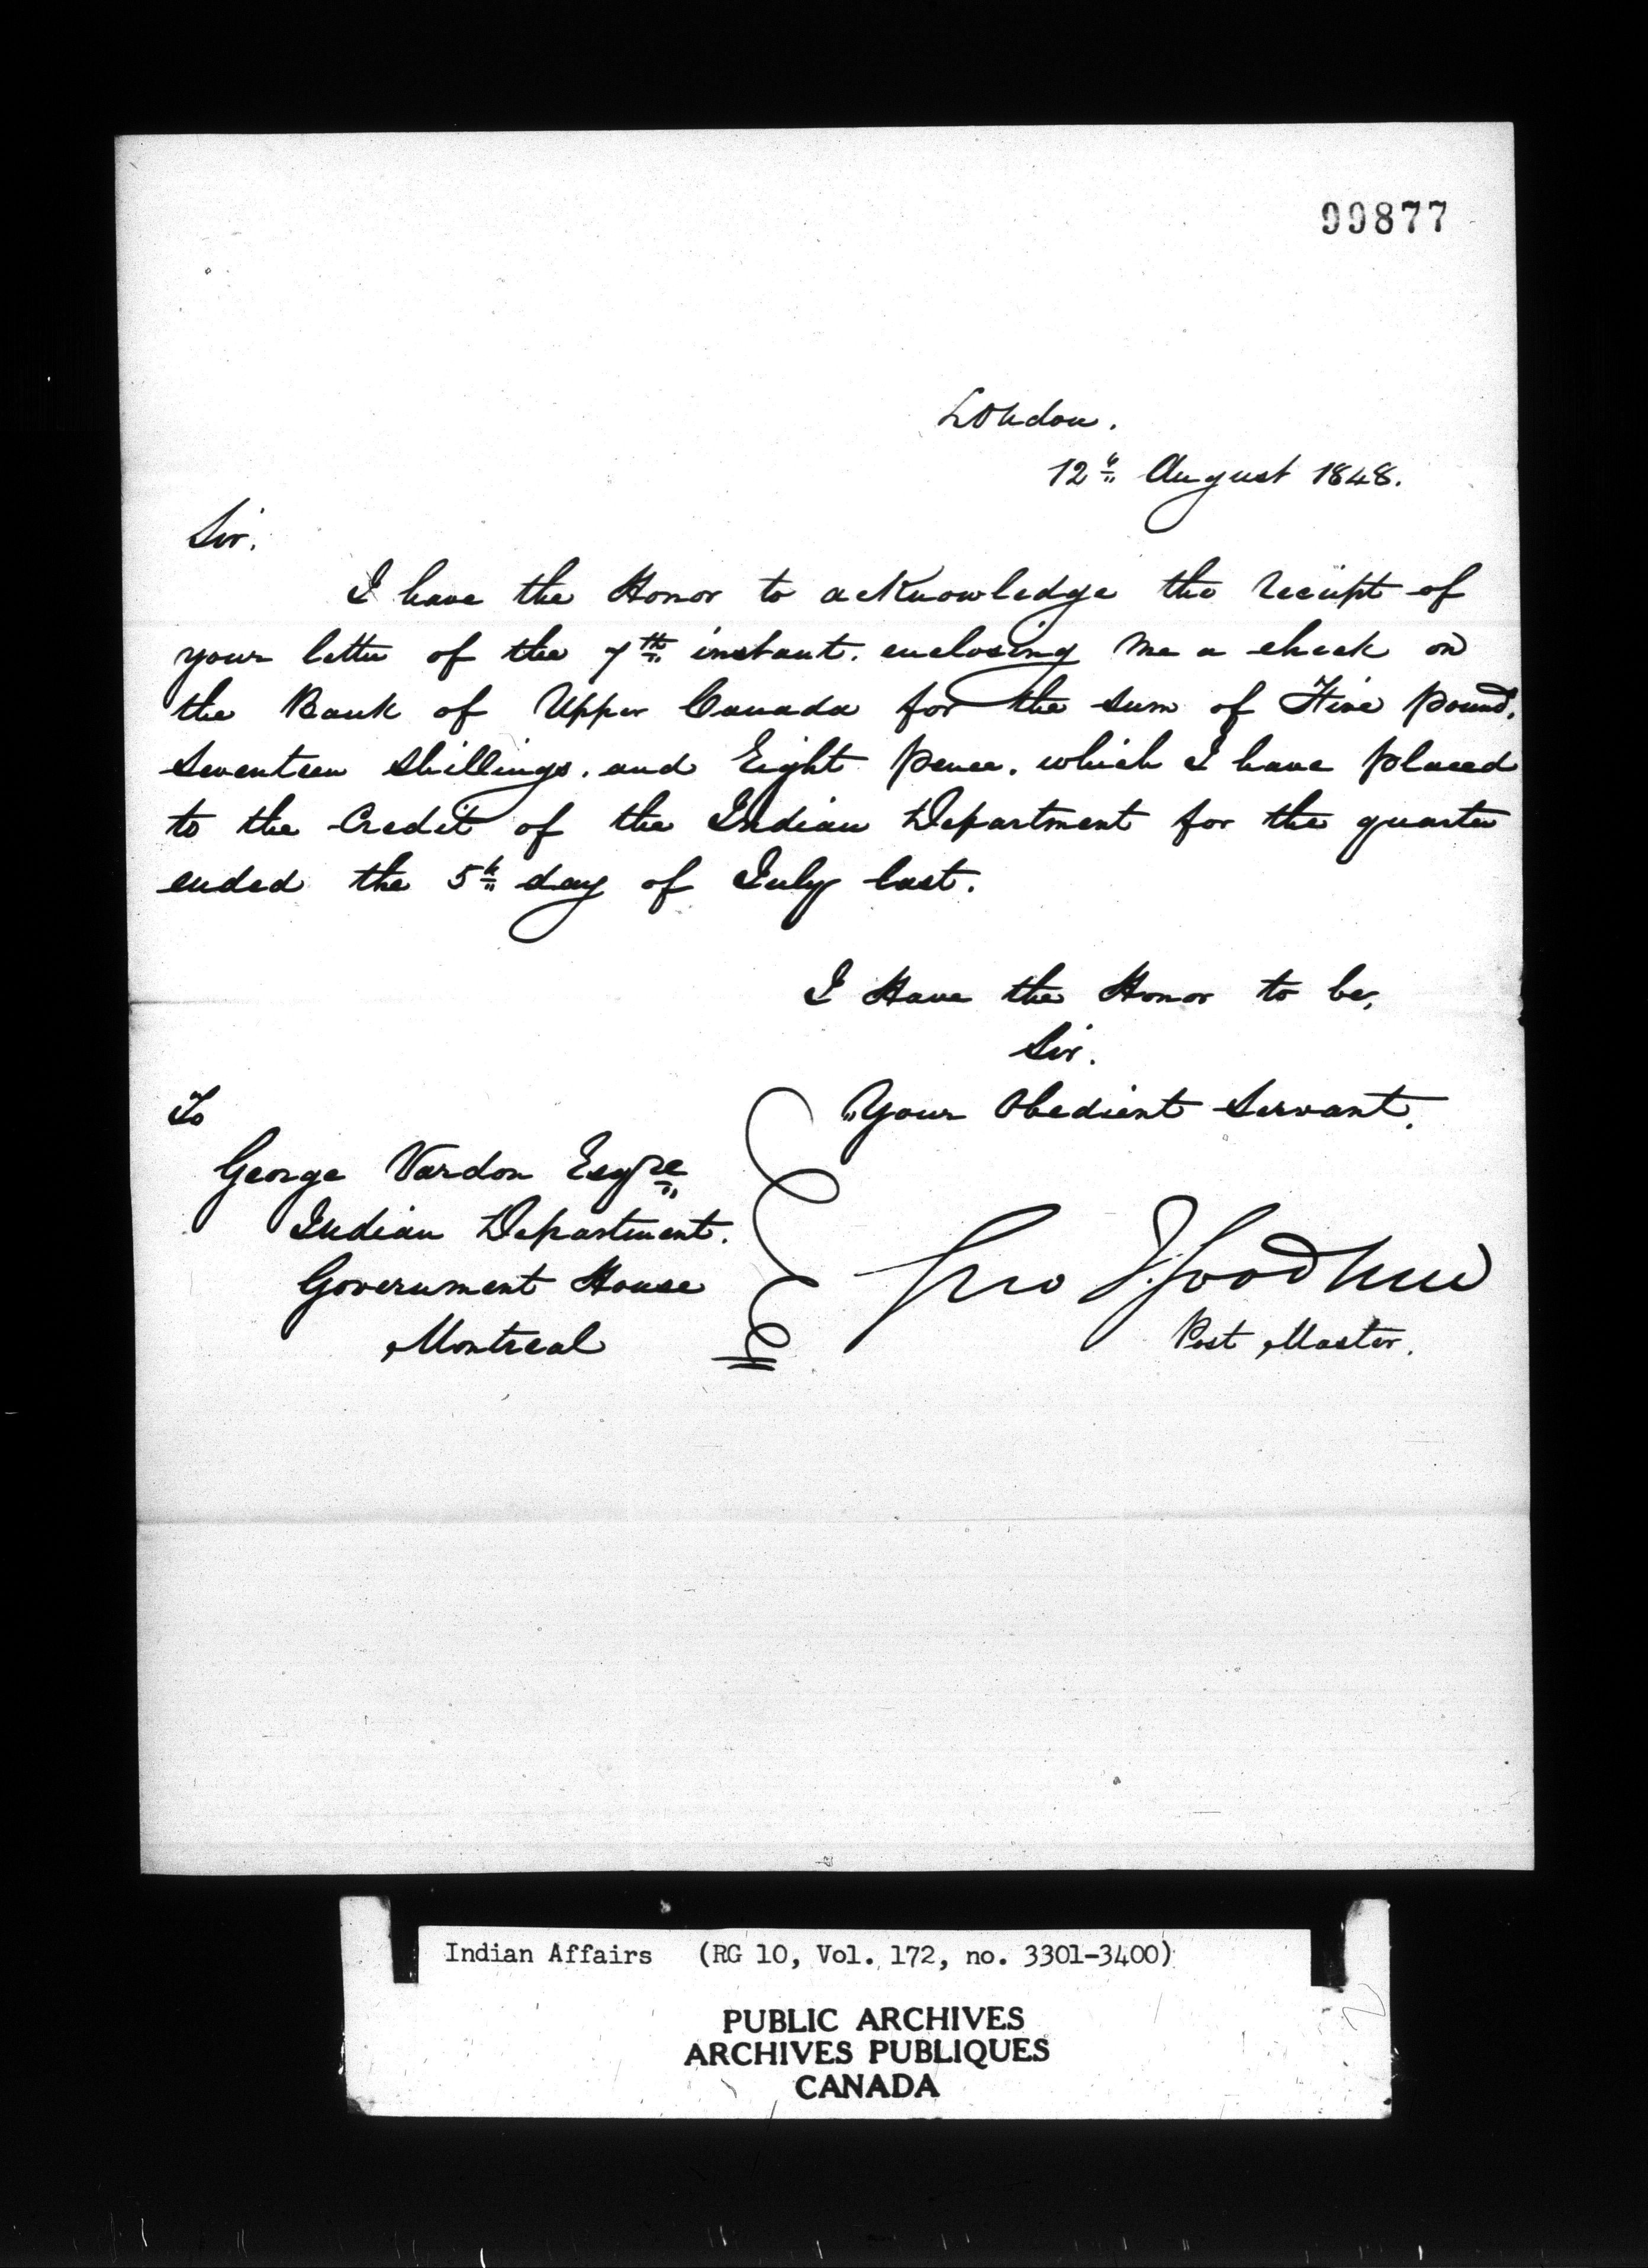 99877
London.
12th August 1848.
Sir.
I have the Honor to acknowledge the receipt of
your letter of the 7th instant. enclosing me a check on
the Bank of Upper Canada for the sum of Five Pound,
Seventeen Shillings. and Eight Pence. which I have placed
to the Credit of the Indian Department for the quarter
ended the 5th day of July last.
I Have the Honor to be,
Sir.
Your Obedient Servant.
To
George Vardon Esqre
Indian Department.
Government House
Montreal
Geo J. Goodhue
Post Master.
Indian Affairs (RG 10, Vol. 172, no. 3301-3400)
PUBLIC ARCHIVES
ARCHIVES PUBLIQUES
CANADA